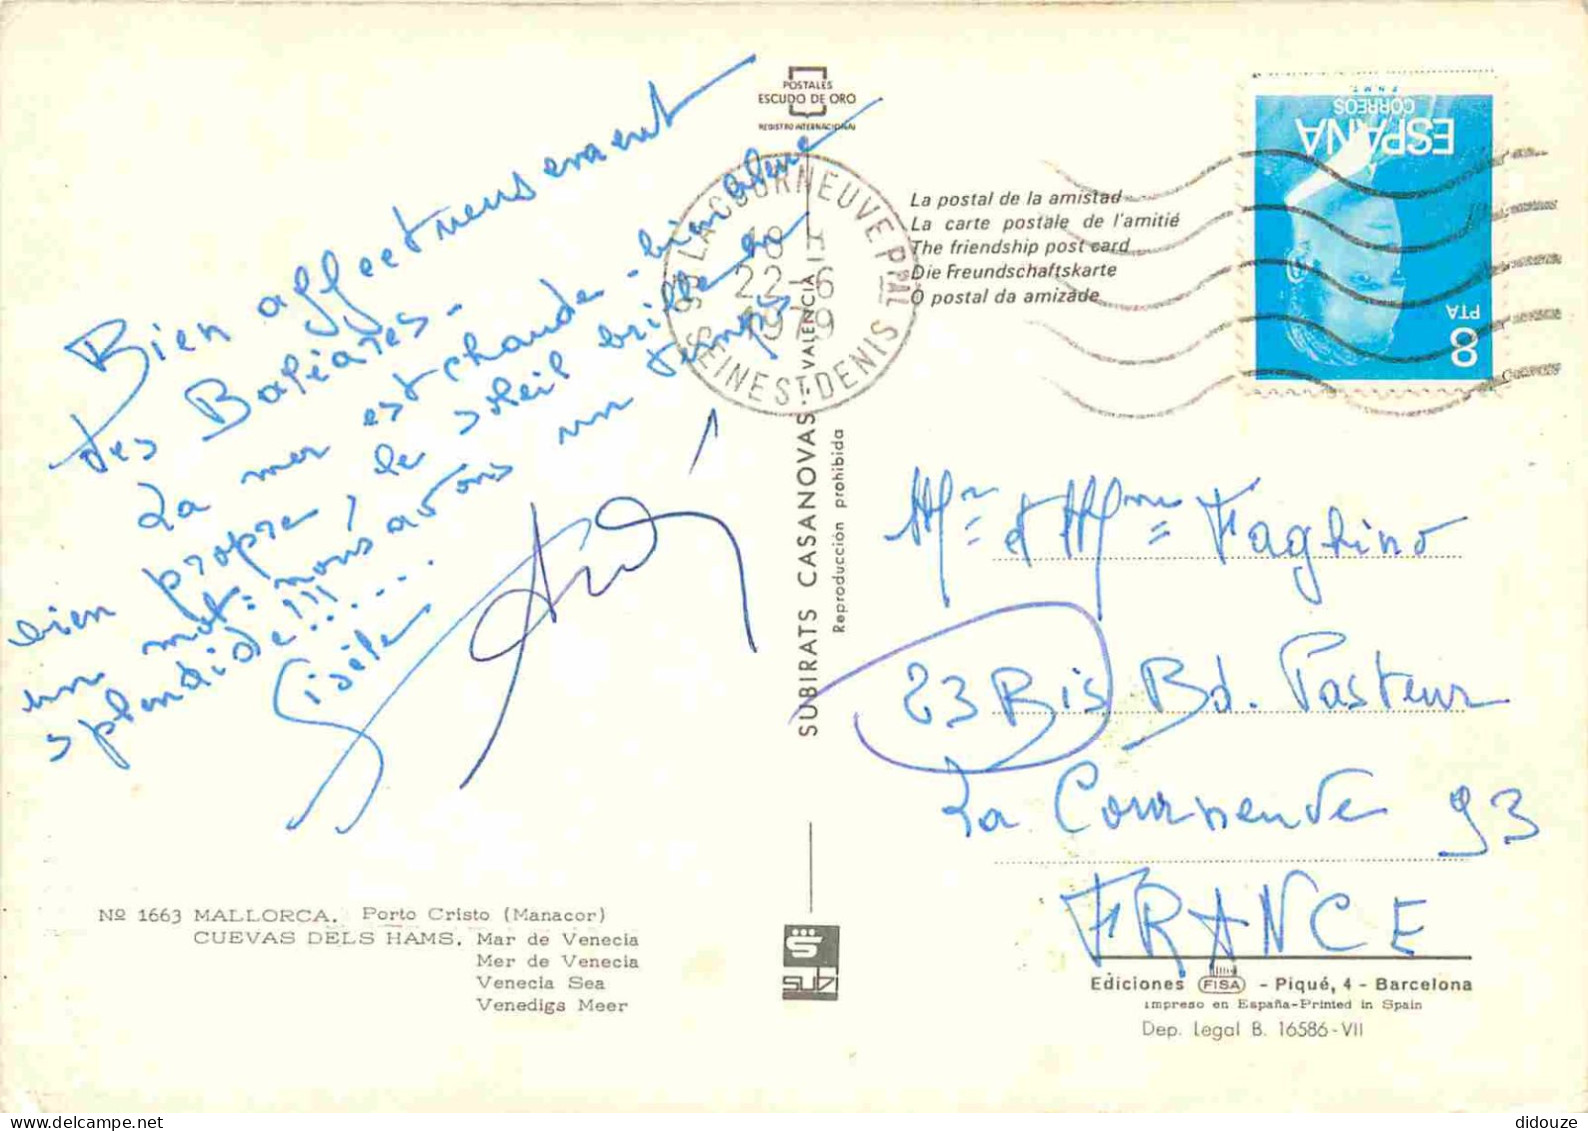 Bien affectueusement
des Baléares.
La mer est chaude - bien bleue
bien propre, le soleil brille en
un mot = nous avons un temps
splendide!!!.....
Gisèle
POSTALES
ESCUDO DE ORO
REGISTRO INTERNACIONAL
93 LA COURNEUVE PPAL
18 H
22-6
1979
SEINE ST DENIS
SUBIRATS CASANOVAS - VALENCIA
Reproducción prohibida
La postal de la amistad
La carte postale de l'amitié
The friendship post card
Die Freundschaftskarte
O postal da amizade
8
PTA
ESPAÑA
CORREOS
F.N.M.T.
Mr et Mme Faghino
23 Bis Bd. Pasteur
La Courneuve 93
FRANCE
Nº 1663 MALLORCA. Porto Cristo (Manacor)
CUEVAS DELS HAMS. Mar de Venecia
Mer de Venecia
Venecia Sea
Venedigs Meer
SUBI
Ediciones FISA - Piqué, 4 - Barcelona
Impreso en España-Printed in Spain
Dep. Legal B. 16586-VII
didouze